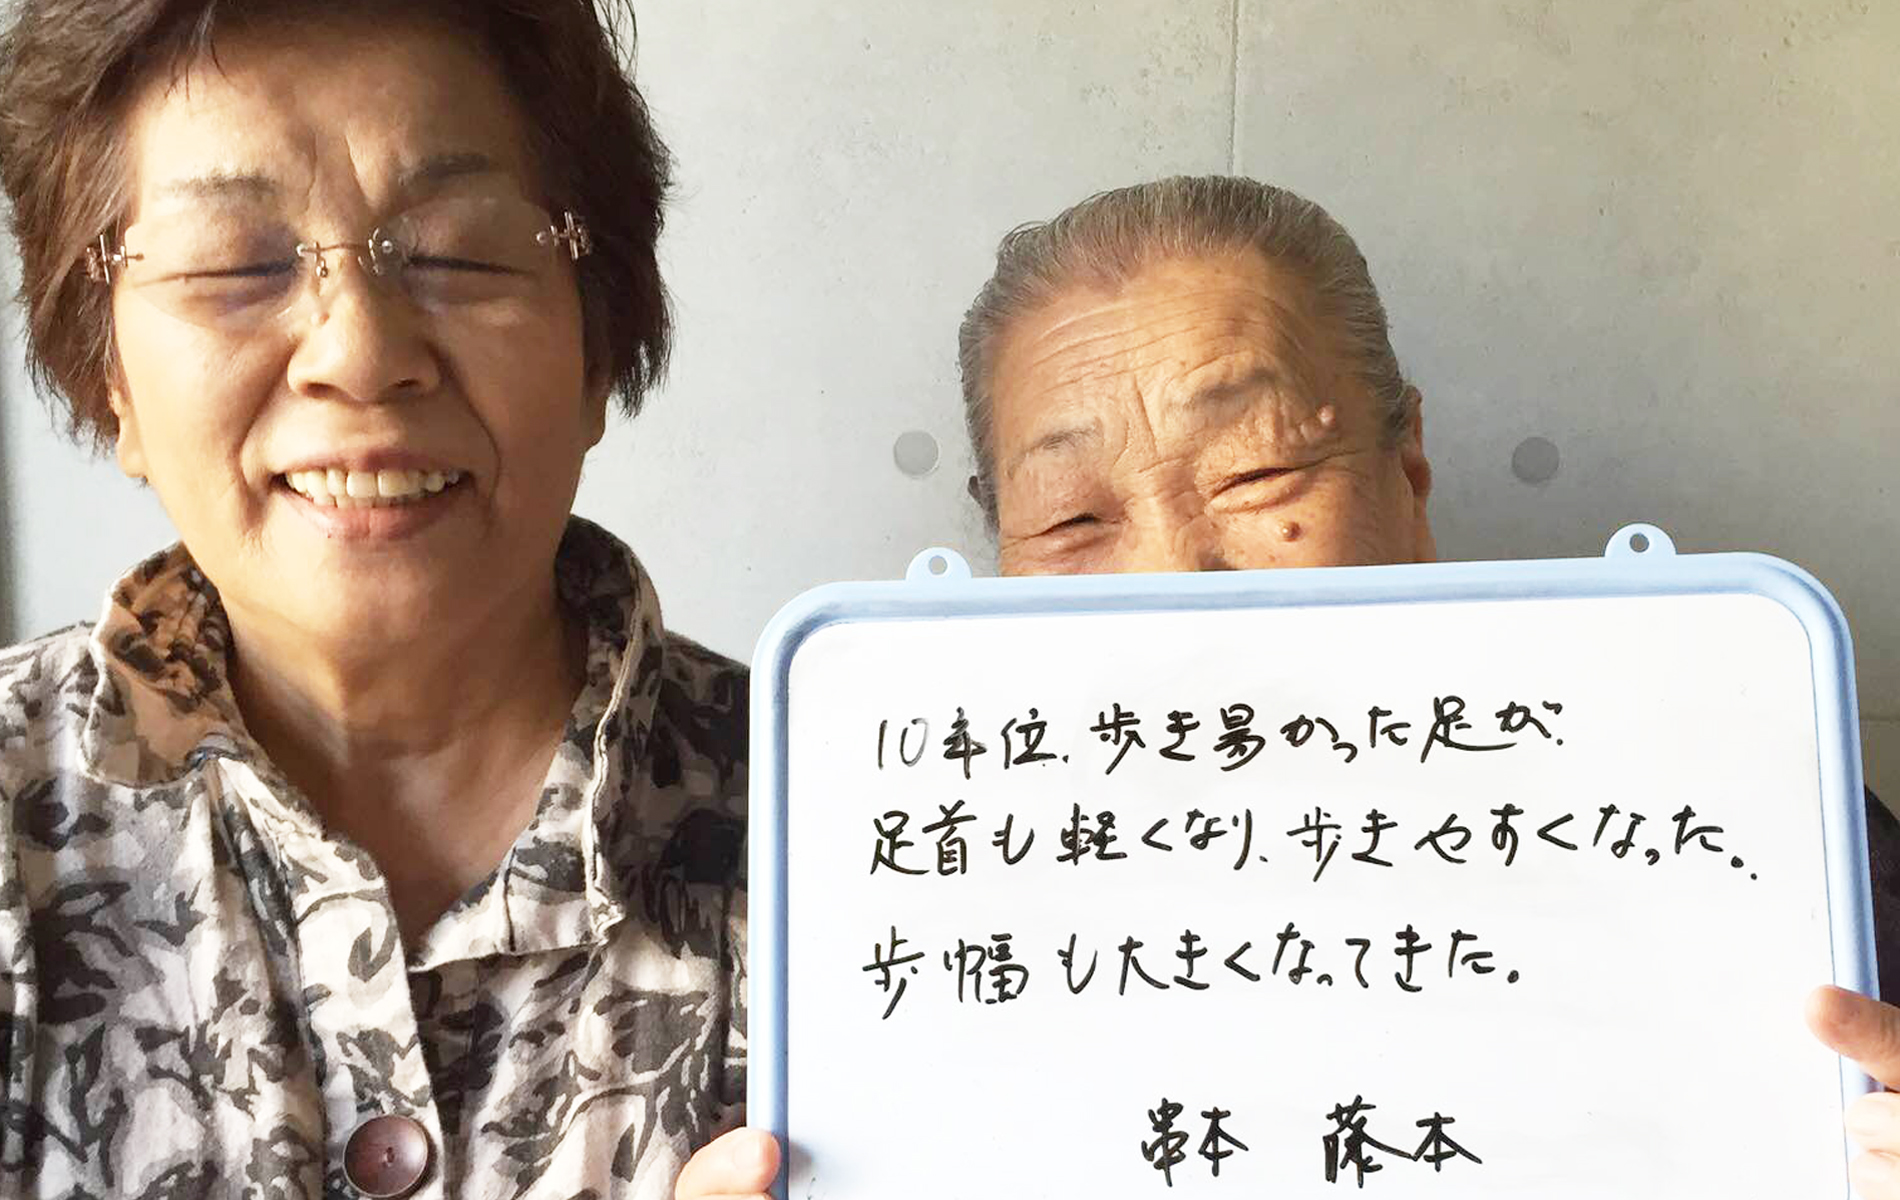 10年位、歩き易かった足が、
足首も軽くなり、歩きやすくなった。
歩幅も大きくなってきた。
串本 藤本